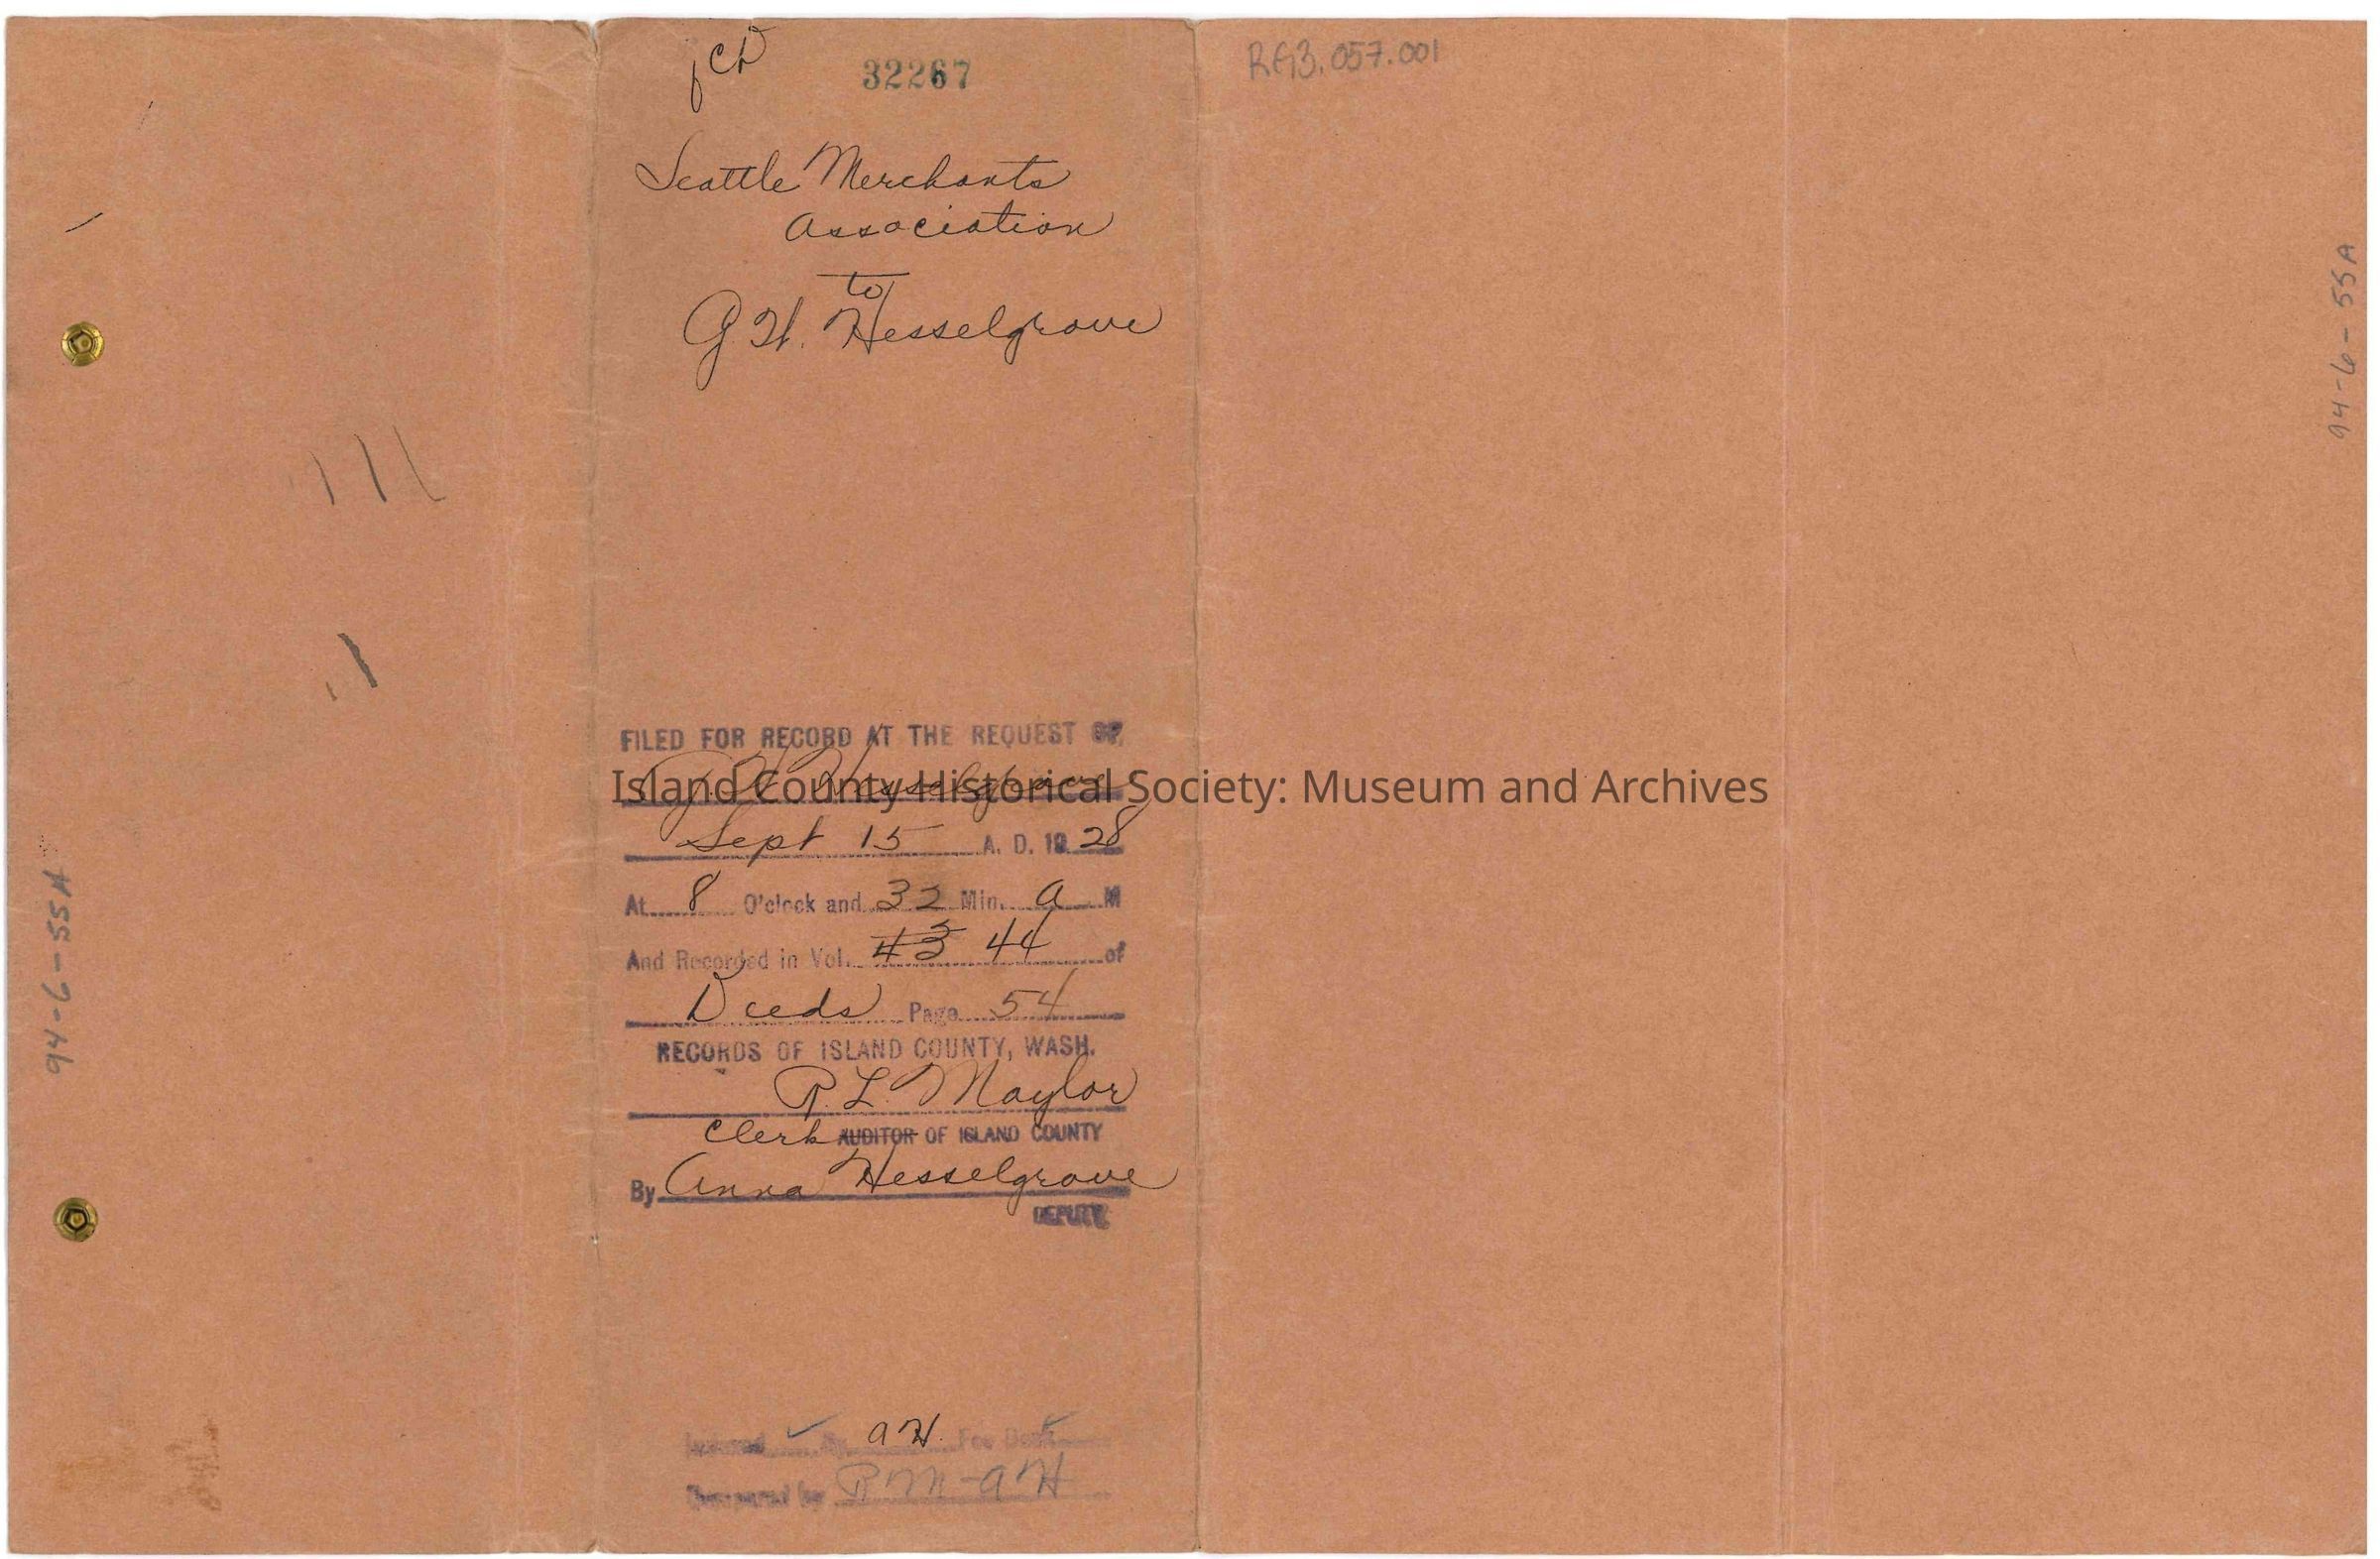 32267
RG3.057.001
Seattle Merchants
Association
to
G. H. Hesselgrave
FILED FOR RECORD AT THE REQUEST OF
G. H. Hesselgrave
Island County Historical Society: Museum and Archives
Sept 15 A. D. 1928
At 8 O'clock and 32 Min. a M
And Recorded in Vol. 43 44 of
Deeds Page 54
RECORDS OF ISLAND COUNTY, WASH.
R. L. Maylor
Clerk AUDITOR OF ISLAND COUNTY
By Anna Hesselgrave
DEPUTY
Indexed By AH. Fee Book
Compared by RM-AH
94-6-55A
94-6-55A